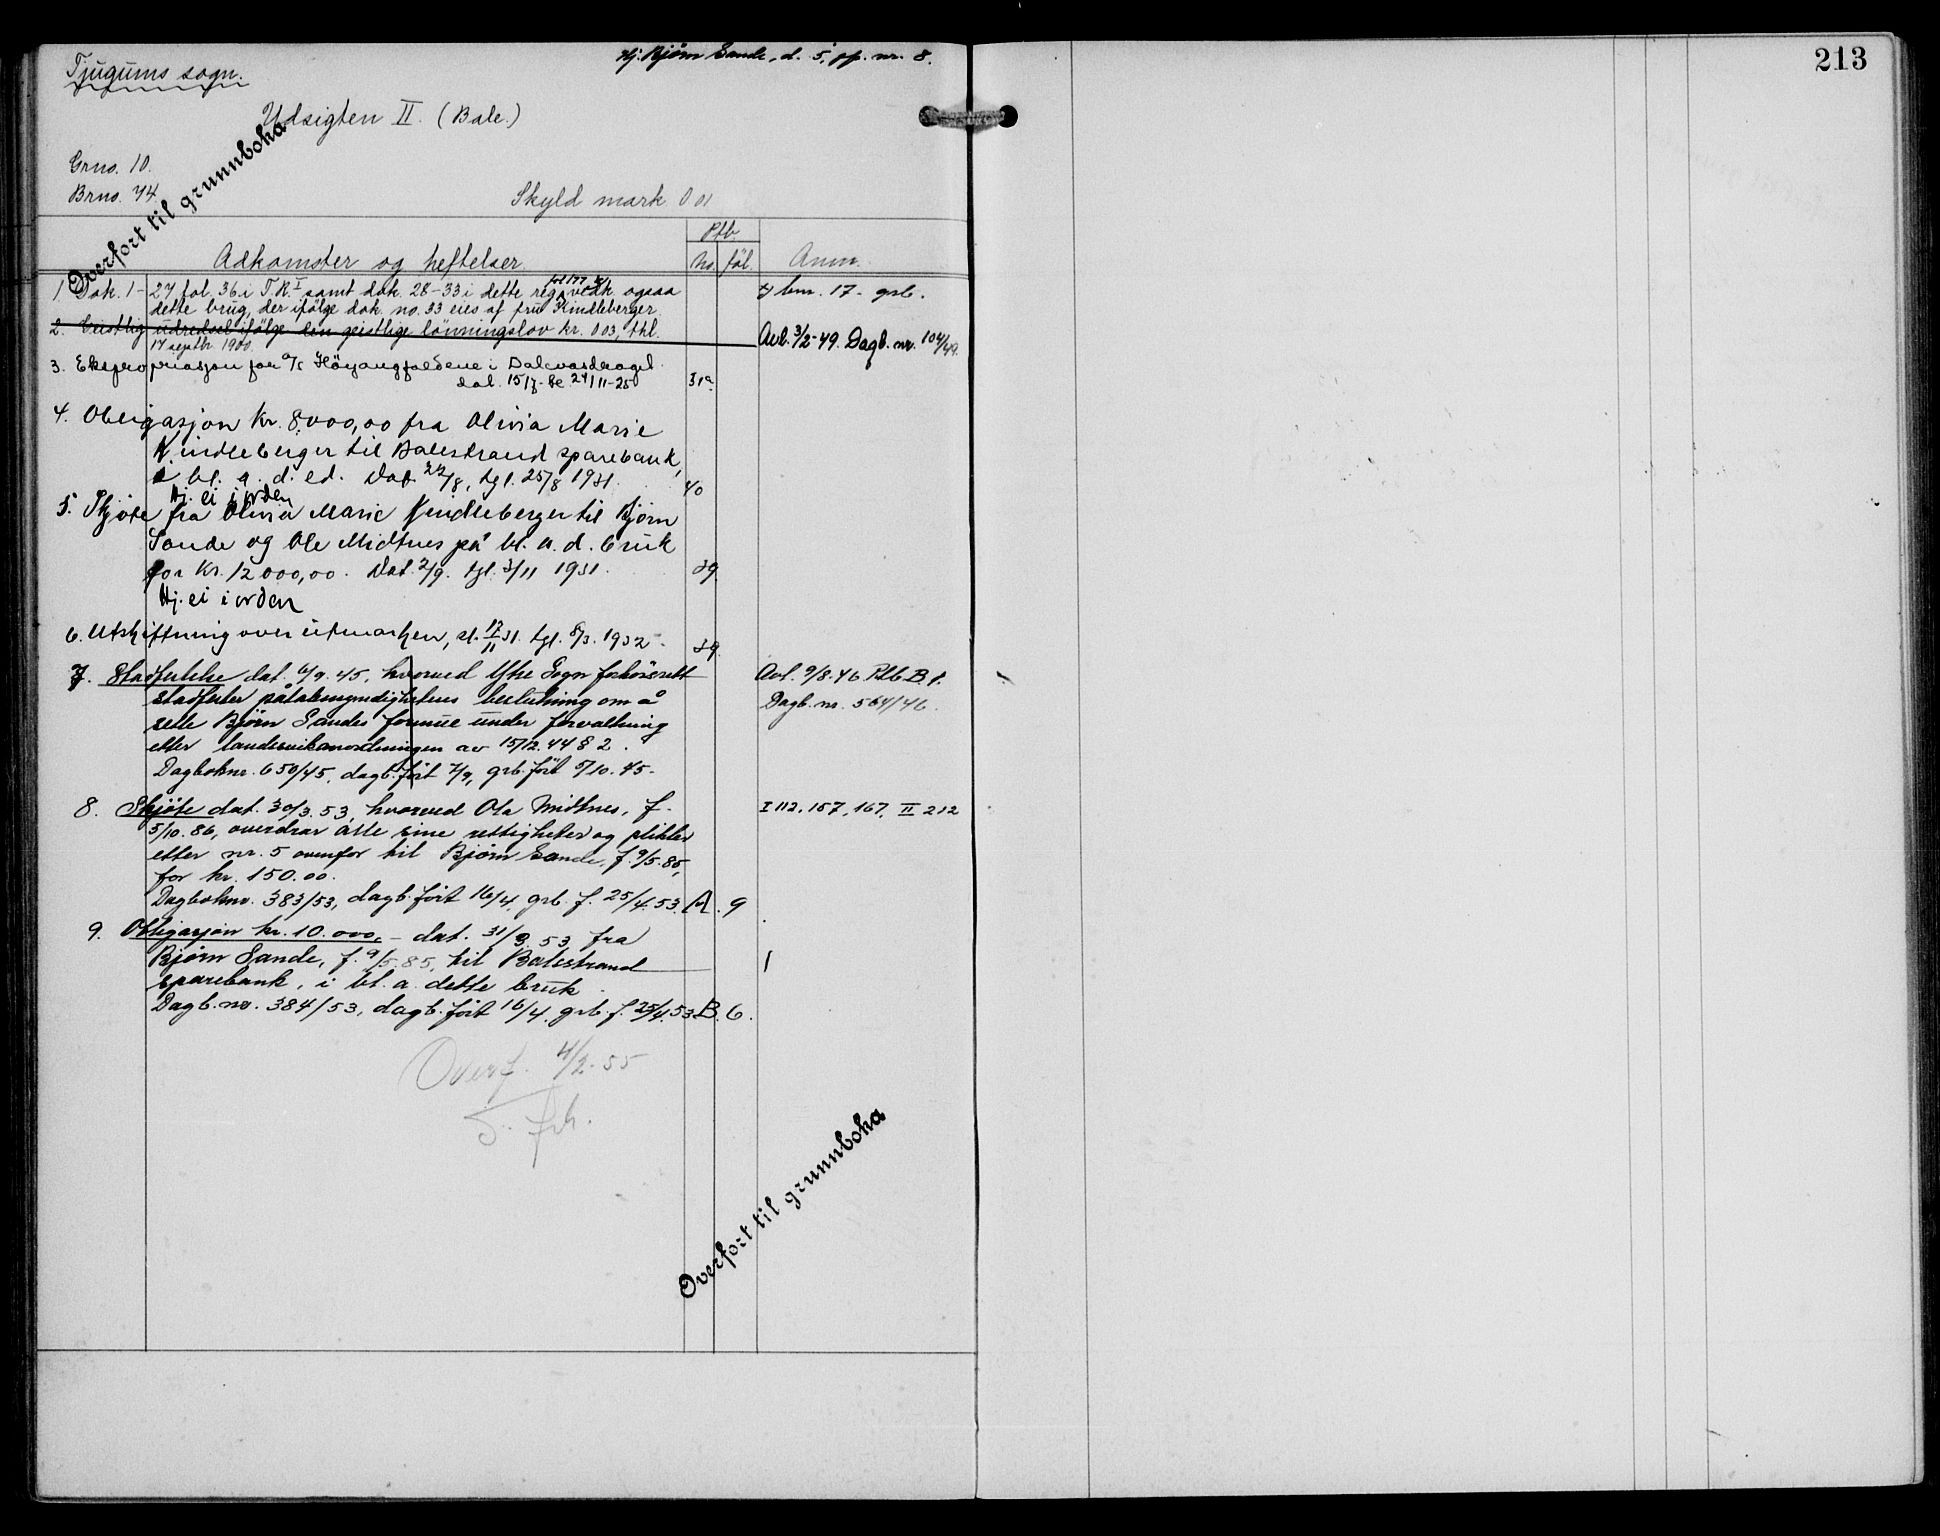 Hj. Bjørn Sande, d. 5, pp. nr. 8.
213
Tjugums sogn.
Udsigten II. (Bale.)
Overført til grunnboka
Grno. 10.
Brno. 74.
Skyld mark 0 01
Ptb.
Adkomster og heftelser.
No. fol.
Anm.
1 Dok. 1-27 fol. 36 i T. R. I samt dok. 28-33 i dette reg. fol 177 vedk. ogsaa
dette brug, der ifølge dok. no. 33 eies af fru Kindleberger.
7 bnr. 17 - grb.
2. Geistlig udredsel ifølge den geistlige lønningslov kr. 0 03, thl.
17 septbr 1900.
Avl. 3/2-49. Dagb. nr. 104/49.
3. Ekspropriasjon for A/S Høyangfaldene i Dalevasdraget.
dat. 15/7 - be. 24/11-25
31a
4. Obligasjon kr. 8000,00 fra Olivia Marie
Kindleberger til Balestrand sparebank,
i bl. a. d. ed. Dat. 22/8, tgl. 25/8 1931.
40
Hj. ei i orden
5. Skjøte fra Olivia Marie Kindleberger til Bjørn
Sande og Ole Midtnes på bl. a. d. bruk
for kr. 12000,00. Dat. 2/9. tgl. 3/11 1931.
39
Hj. ei i orden
6. Utskiftning over utmarken, sl. 12/11 31. tgl. 8/3. 1932.
39
7. Stadfestelse dat. 6/9. 45, hvorved Ytre Sogn forhørsrett
stadfester påtalemyndighetens beslutning om å
sette Bjørn Sandes formue under forvaltning
etter landssvikanordningen av 15/12. 44 § 2.
Dagboknr. 650/45, dagb. ført 7/9, grb. ført 5/10. 45.
Avl. 9/8. 46 Ptb. B 1.
Dagb. nr. 564/46.
8. Skjøte dat. 30/3. 53, hvorved Ola Midtnes, f.
5/10. 86, overdrar alle sine rettigheter og plikter
etter nr. 5 ovenfor til Bjørn Sande, f. 9/5. 85,
for kr. 150.00.
Dagboknr. 383/53, dagb. ført 16/4, grb. f. 25/4. 53. A. 9
I 112, 157, 167, II 212
9. Obligasjon kr. 10.000,- dat. 31/3. 53 fra
Bjørn Sande, f. 9/5. 85, til Balestrand
sparebank, i bl. a. dette bruk.
Dagb. nr. 384/53, dagb. ført 16/4, grb. f. 25/4. 53 B. 6.
Overf. 4/2-55
Overført til grunnboka